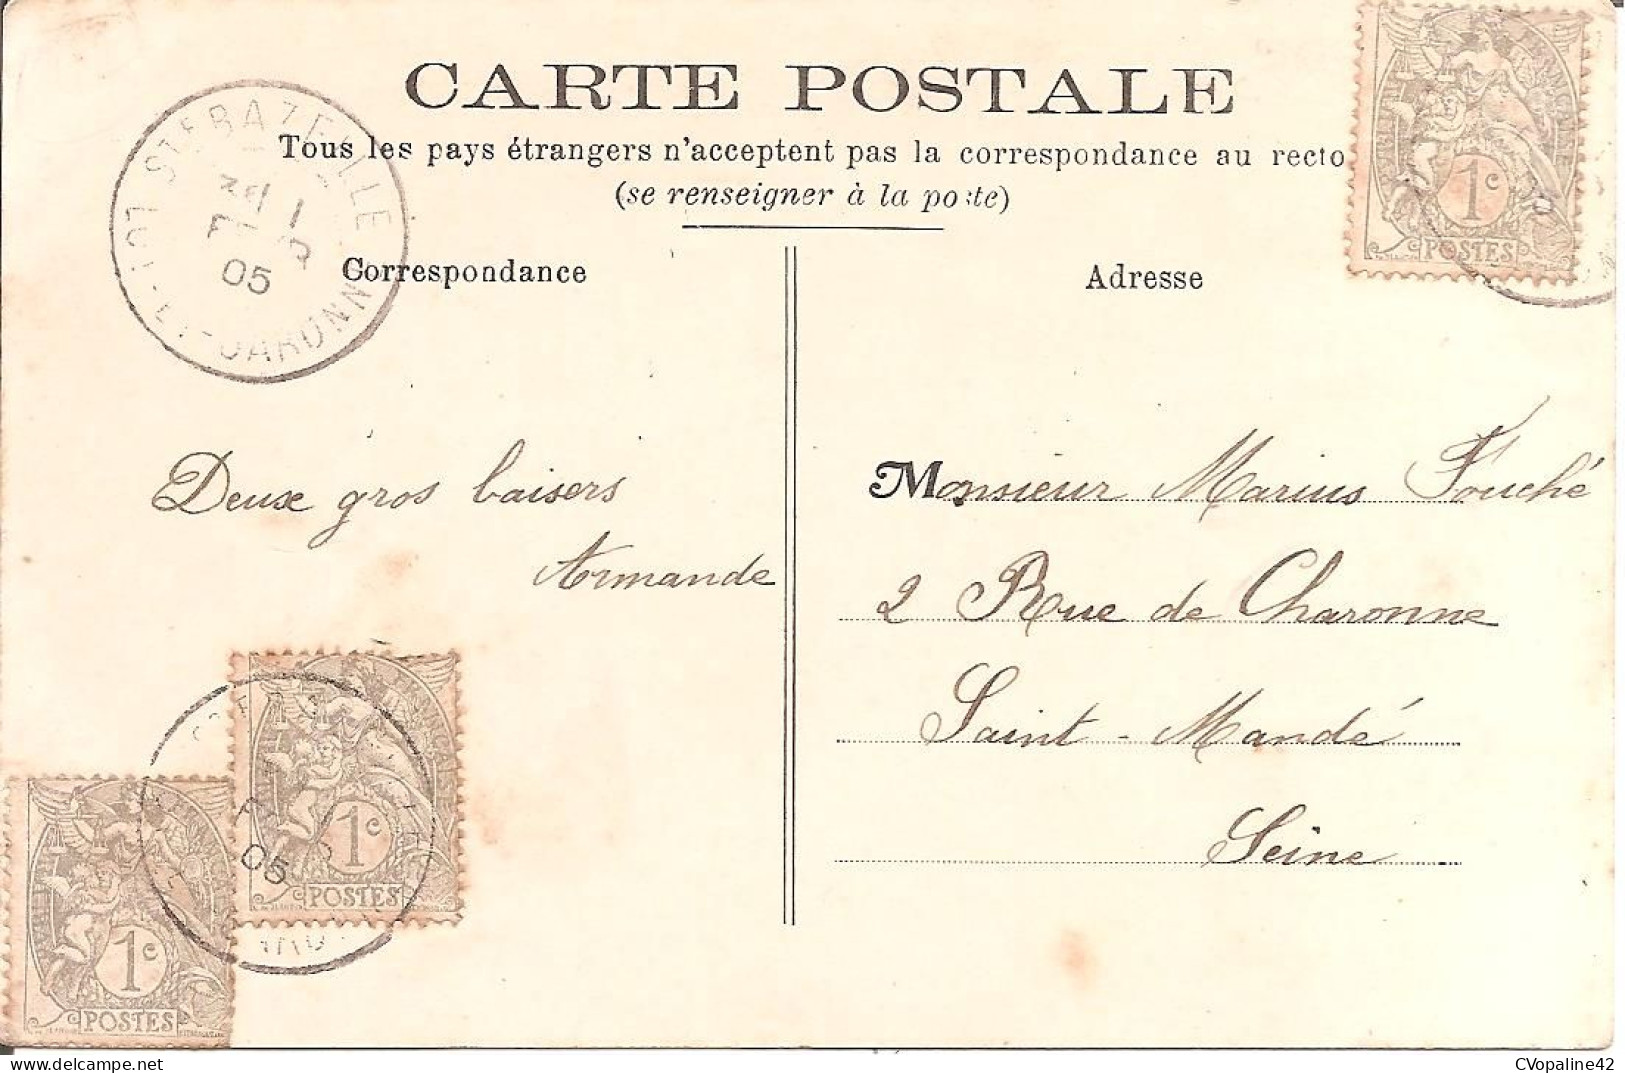 CARTE POSTALE
Tous les pays étrangers n'acceptent pas la correspondance au recto
(se renseigner à la poste)
Correspondance
Adresse
STE BAZEILLE
05
LOT-ET-GARONNE
1c
POSTES
Deux gros baisers
Armande
Monsieur Marius Fouché
2 Rue de Charonne
Saint-Mandé
Seine
05
1c
POSTES
1c
POSTES
CVopaline42